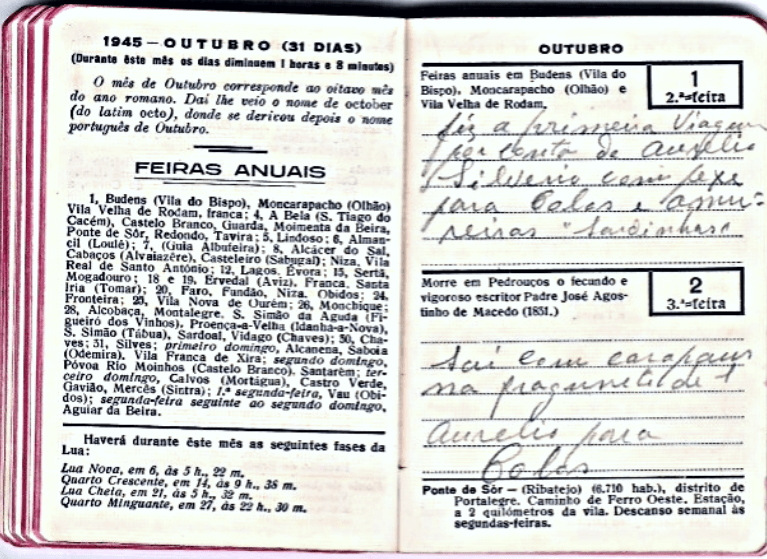 1945 — OUTUBRO (31 DIAS)
(Durante êste mês os dias diminuem 1 horas e 8 minutos)
O mês de Outubro corresponde ao oitavo mês
do ano romano. Daí lhe veio o nome de october
(do latim octo), donde se derivou depois o nome
português de Outubro.
FEIRAS ANUAIS
1, Budens (Vila do Bispo), Moncarapacho (Olhão)
Vila Velha de Rodam, franca; 4, A Bela (S. Tiago do
Cacém), Castelo Branco, Guarda, Moimenta da Beira,
Ponte de Sôr, Redondo, Tavira; 5, Lindoso; 6, Alman-
cil (Loulé); 7, (Guia Albufeira); 8, Alcácer do Sal,
Cabaços (Alvaiazêre), Casteleiro (Sabugal); Niza, Vila
Real de Santo António; 12, Lagos, Évora; 15, Sertã,
Mogadouro; 18 e 19, Ervedal (Aviz), Franca, Santa
Iria (Tomar); 20, Faro, Fundão, Niza, Óbidos; 24,
Fronteira; 25, Vila Nova de Ourém; 26, Monchique;
28, Alcobaça, Montalegre, S. Simão da Aguda (Fi-
gueiró dos Vinhos), Proença-a-Velha (Idanha-a-Nova),
S. Simão (Tábua), Sardoal, Vidago (Chaves); 30, Cha-
ves; 31, Silves; primeiro domingo, Alcanena, Saboia
(Odemira), Vila Franca de Xira; segundo domingo,
Póvoa Rio Moinhos (Castelo Branco), Santarém; ter-
ceiro domingo, Calvos (Mortágua), Castro Verde,
Gavião, Mercês (Sintra); 1.ª segunda-feira, Vau (Obi-
dos); segunda-feira seguinte ao segundo domingo,
Aguiar da Beira.
Haverá durante êste mês as seguintes fases da
Lua:
Lua Nova, em 6, às 5 h., 22 m.
Quarto Crescente, em 14, às 9 h., 38 m.
Lua Cheia, em 21, às 5 h., 32 m.
Quarto Minguante, em 27, às 22 h., 30 m.
OUTUBRO
Feiras anuais em Budens (Vila do
Bispo), Moncarapacho (Olhão) e
Vila Velha de Rodam.
1
2.ª-feira
fiz a primeira Viagem
por conta de Aurelio
Silverio com pexe
para Colos e amu-
reiras "Sardinhas"
Morre em Pedrouços o fecundo e
vigoroso escritor Padre José Agos-
tinho de Macedo (1831.)
2
3.ª-feira
Sai com carapaus
na fragunete de
Aurelio para
Colos
Ponte de Sôr — (Ribatejo) (6.710 hab.), distrito de
Portalegre. Caminho de Ferro Oeste. Estação,
a 2 quilómetros da vila. Descanso semanal às
segundas-feiras.